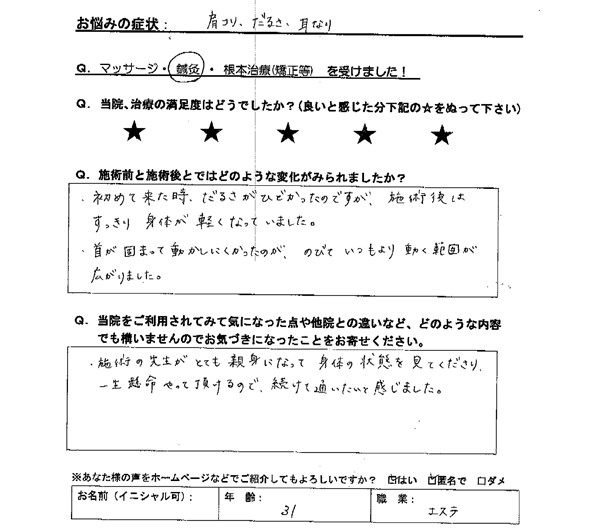 お悩みの症状： 肩コリ、だるさ、耳なり
Q．マッサージ・鍼灸・根本治療（矯正等）を受けました！
Q．当院、治療の満足度はどうでしたか？（良いと感じた分下記の☆をぬって下さい）
★ ★ ★ ★ ★
Q．施術前と施術後とではどのような変化がみられましたか？
・初めて来た時、だるさがひどかったのですが、施術後は
すっきり身体が軽くなっていました。
・首が固まって動かしにくかったのが、のびていつもより動く範囲が
広がりました。
Q．当院をご利用されてみて気になった点や他院との違いなど、どのような内容
でも構いませんのでお気づきになったことをお寄せください。
・施術の先生がとても親身になって身体の状態を見てくださり、
一生懸命やって頂けるので、続けて通いたいと感じました。
※あなた様の声をホームページなどでご紹介してもよろしいですか？ ☑はい ☑匿名で □ダメ
お名前（イニシャル可）： 年 齢： 31 職 業： エステ